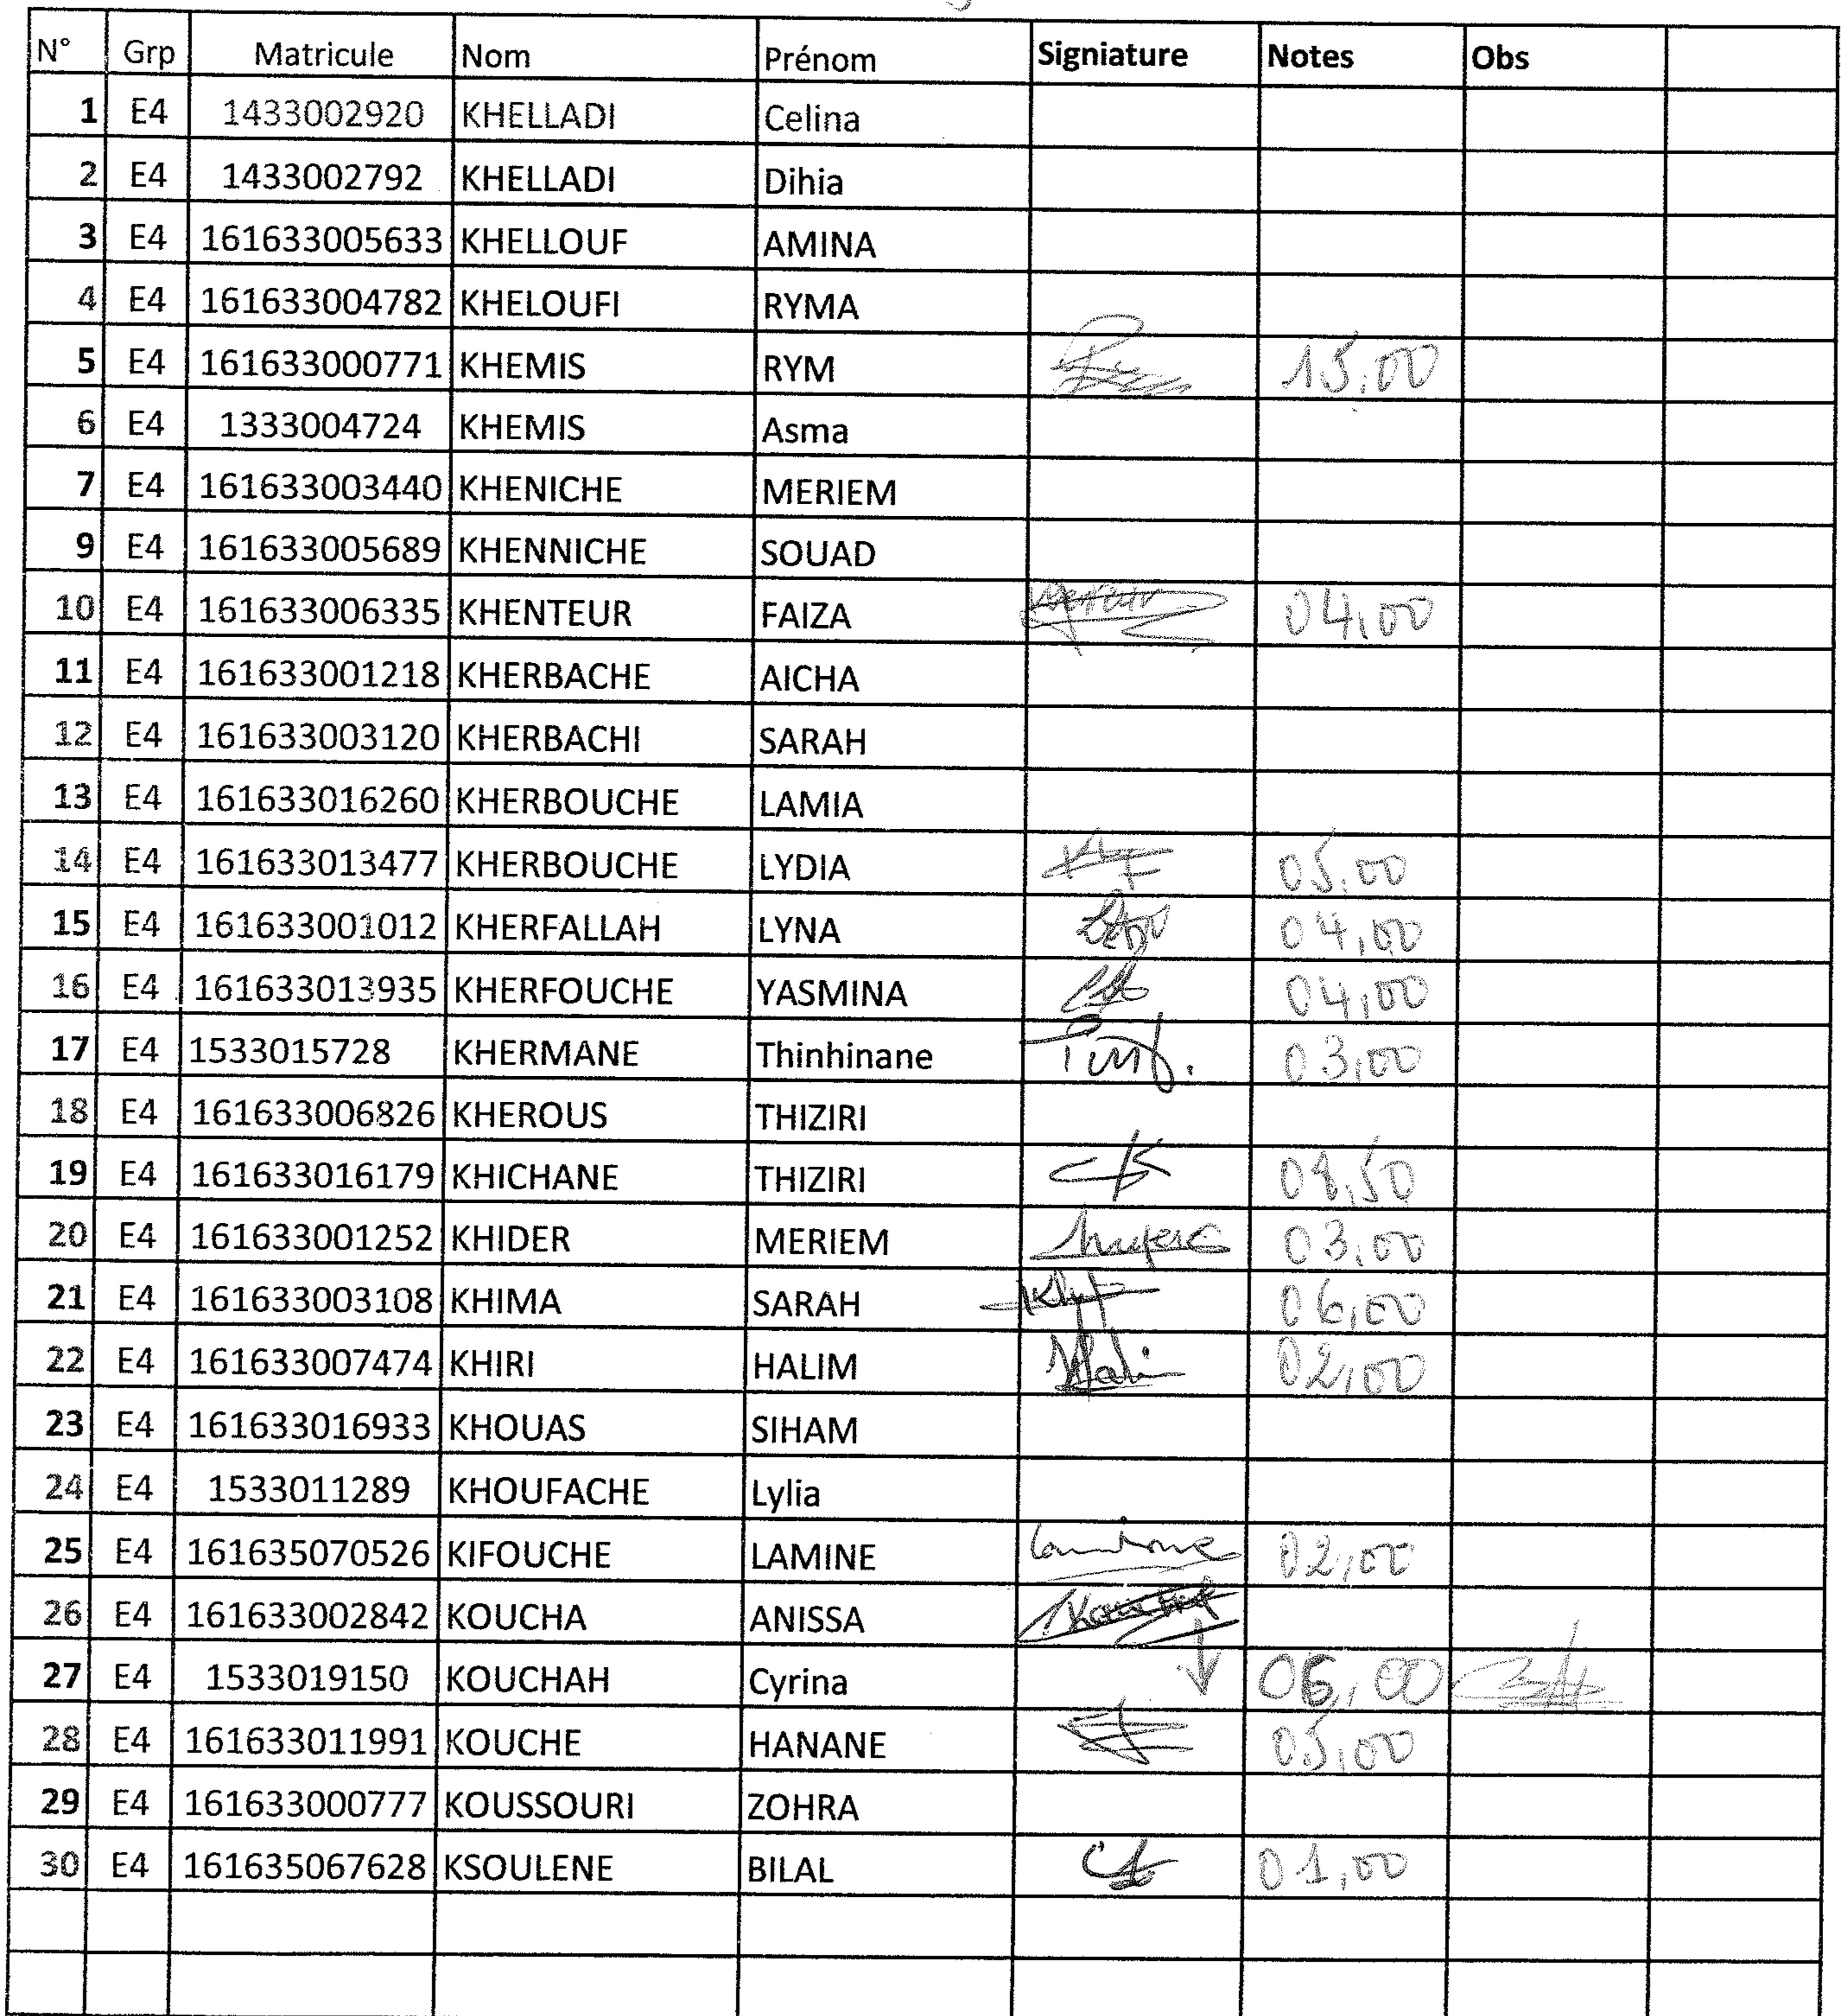 N° Grp Matricule Nom Prénom Signiature Notes Obs
1 E4 1433002920 KHELLADI Celina
2 E4 1433002792 KHELLADI Dihia
3 E4 161633005633 KHELLOUF AMINA
4 E4 161633004782 KHELOUFI RYMA
5 E4 161633000771 KHEMIS RYM 15,00
6 E4 1333004724 KHEMIS Asma
7 E4 161633003440 KHENICHE MERIEM
9 E4 161633005689 KHENNICHE SOUAD
10 E4 161633006335 KHENTEUR FAIZA 04,00
11 E4 161633001218 KHERBACHE AICHA
12 E4 161633003120 KHERBACHI SARAH
13 E4 161633016260 KHERBOUCHE LAMIA
14 E4 161633013477 KHERBOUCHE LYDIA 05,00
15 E4 161633001012 KHERFALLAH LYNA 04,00
16 E4 161633013935 KHERFOUCHE YASMINA 04,00
17 E4 1533015728 KHERMANE Thinhinane 03,00
18 E4 161633006826 KHEROUS THIZIRI
19 E4 161633016179 KHICHANE THIZIRI 08,50
20 E4 161633001252 KHIDER MERIEM 03,00
21 E4 161633003108 KHIMA SARAH 06,00
22 E4 161633007474 KHIRI HALIM 02,00
23 E4 161633016933 KHOUAS SIHAM
24 E4 1533011289 KHOUFACHE Lylia
25 E4 161635070526 KIFOUCHE LAMINE 02,00
26 E4 161633002842 KOUCHA ANISSA
27 E4 1533019150 KOUCHAH Cyrina 06,00
28 E4 161633011991 KOUCHE HANANE 05,00
29 E4 161633000777 KOUSSOURI ZOHRA
30 E4 161635067628 KSOULENE BILAL 01,00